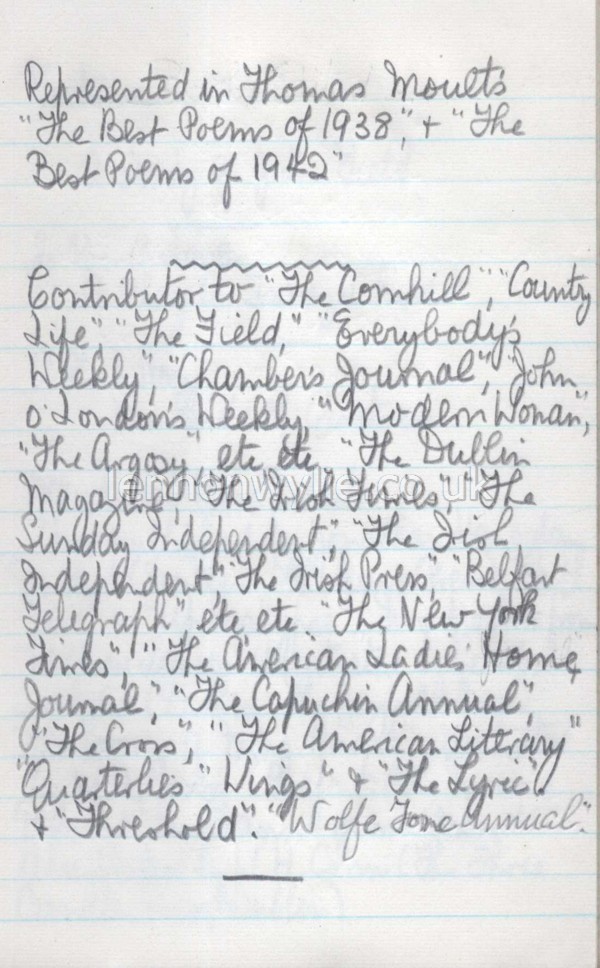 Represented in Thomas Moult's
"The Best Poems of 1938", + "The
Best Poems of 1942"
Contributor to "The Cornhill", "Country
Life", "The Field," "Everybody's
Weekly", "Chamber's Journal", "John
o' London's Weekly, "Modern Woman",
"The Argosy" etc etc "The Dublin
Magazine", "The Irish Times", "The
Sunday Independent", "The Irish
Independent", "The Irish Press", "Belfast
Telegraph" etc etc. "The New York
Times", "The American Ladies Home
Journal", "The Capuchin Annual",
"The Cross", "The American Literary"
"Quarterlies" "Wings" & "The Lyric".
+ "Threshold". "Wolfe Tone Annual".
lennonwylie.co.uk